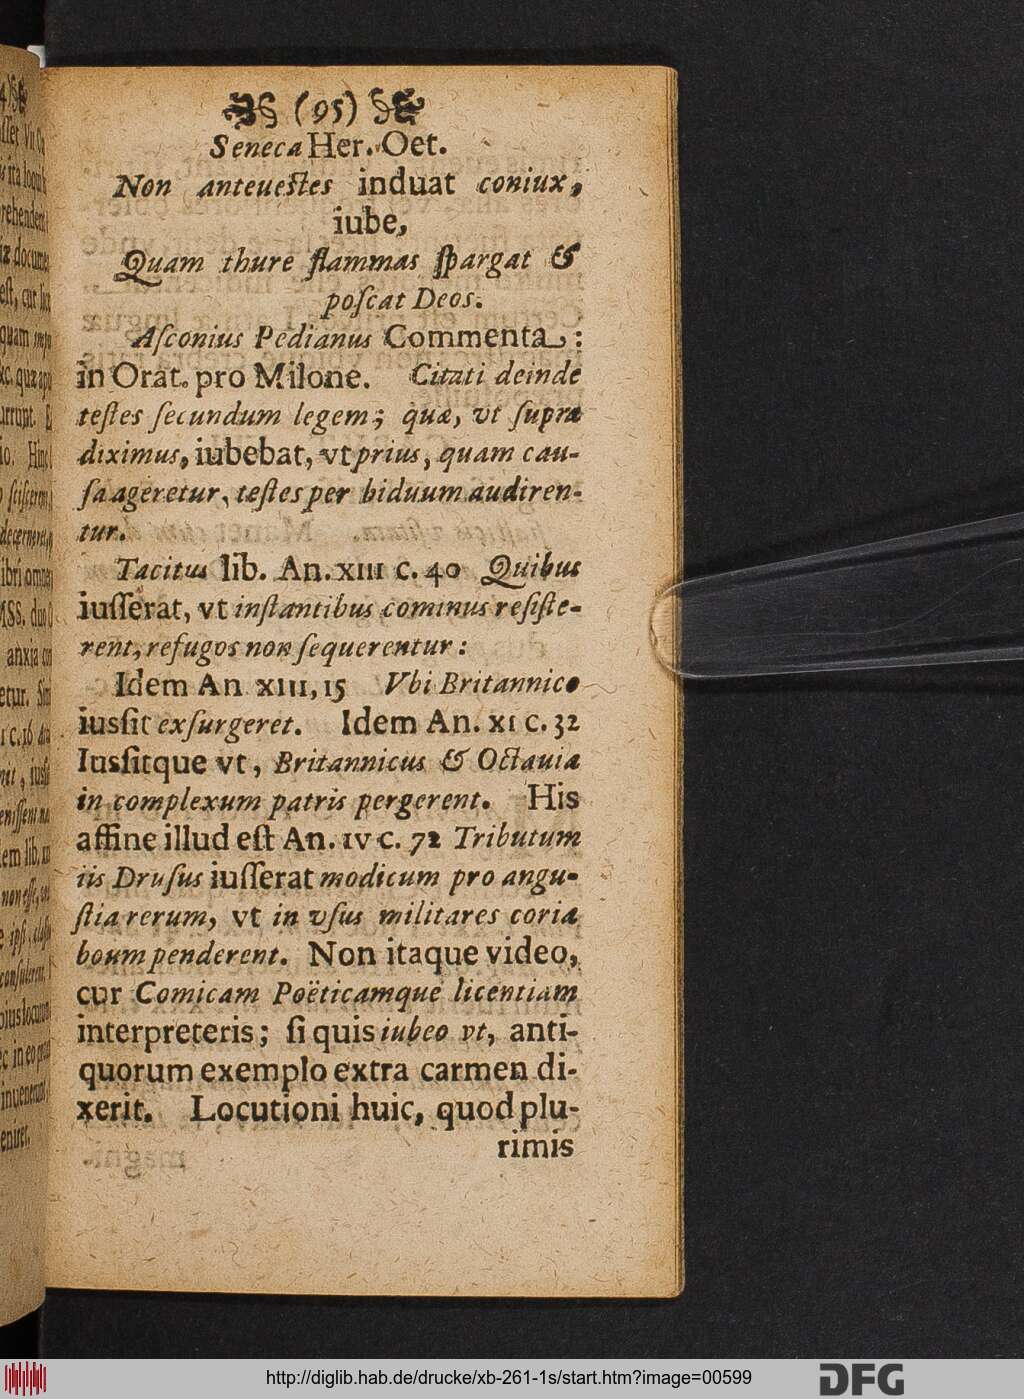 (95)
Seneca Her. Oet.
Non anteueſtes induat coniux,
iube,
Quam thure flammas ſpargat &
poſcat Deos.
Aſconius Pedianus Commenta:
in Orat. pro Milone. Citati deinde
teſtes ſecundum legem; quæ, vt ſupra
diximus, iubebat, vt prius, quam cau-
ſa ageretur, teſtes per biduum audiren-
tur.
Tacitus lib. An. XIII c. 40 Quibus
iuſſerat, vt inſtantibus cominus reſiſte-
rent, refugos non ſequerentur:
Idem An XIII, 15 Vbi Britannico
iusſit exſurgeret. Idem An. XI c. 32
Iusſitque vt, Britannicus & Octauia
in complexum patris pergerent. His
affine illud eſt An. IV c. 72 Tributum
iis Druſus iuſſerat modicum pro angu-
ſtia rerum, vt in vſus militares coria
boum penderent. Non itaque video,
cur Comicam Poëticamque licentiam
interpreteris; ſi quis iubeo vt, anti-
quorum exemplo extra carmen di-
xerit. Locutioni huic, quod plu-
rimis
http://diglib.hab.de/drucke/xb-261-1s/start.htm?image=00599
DFG